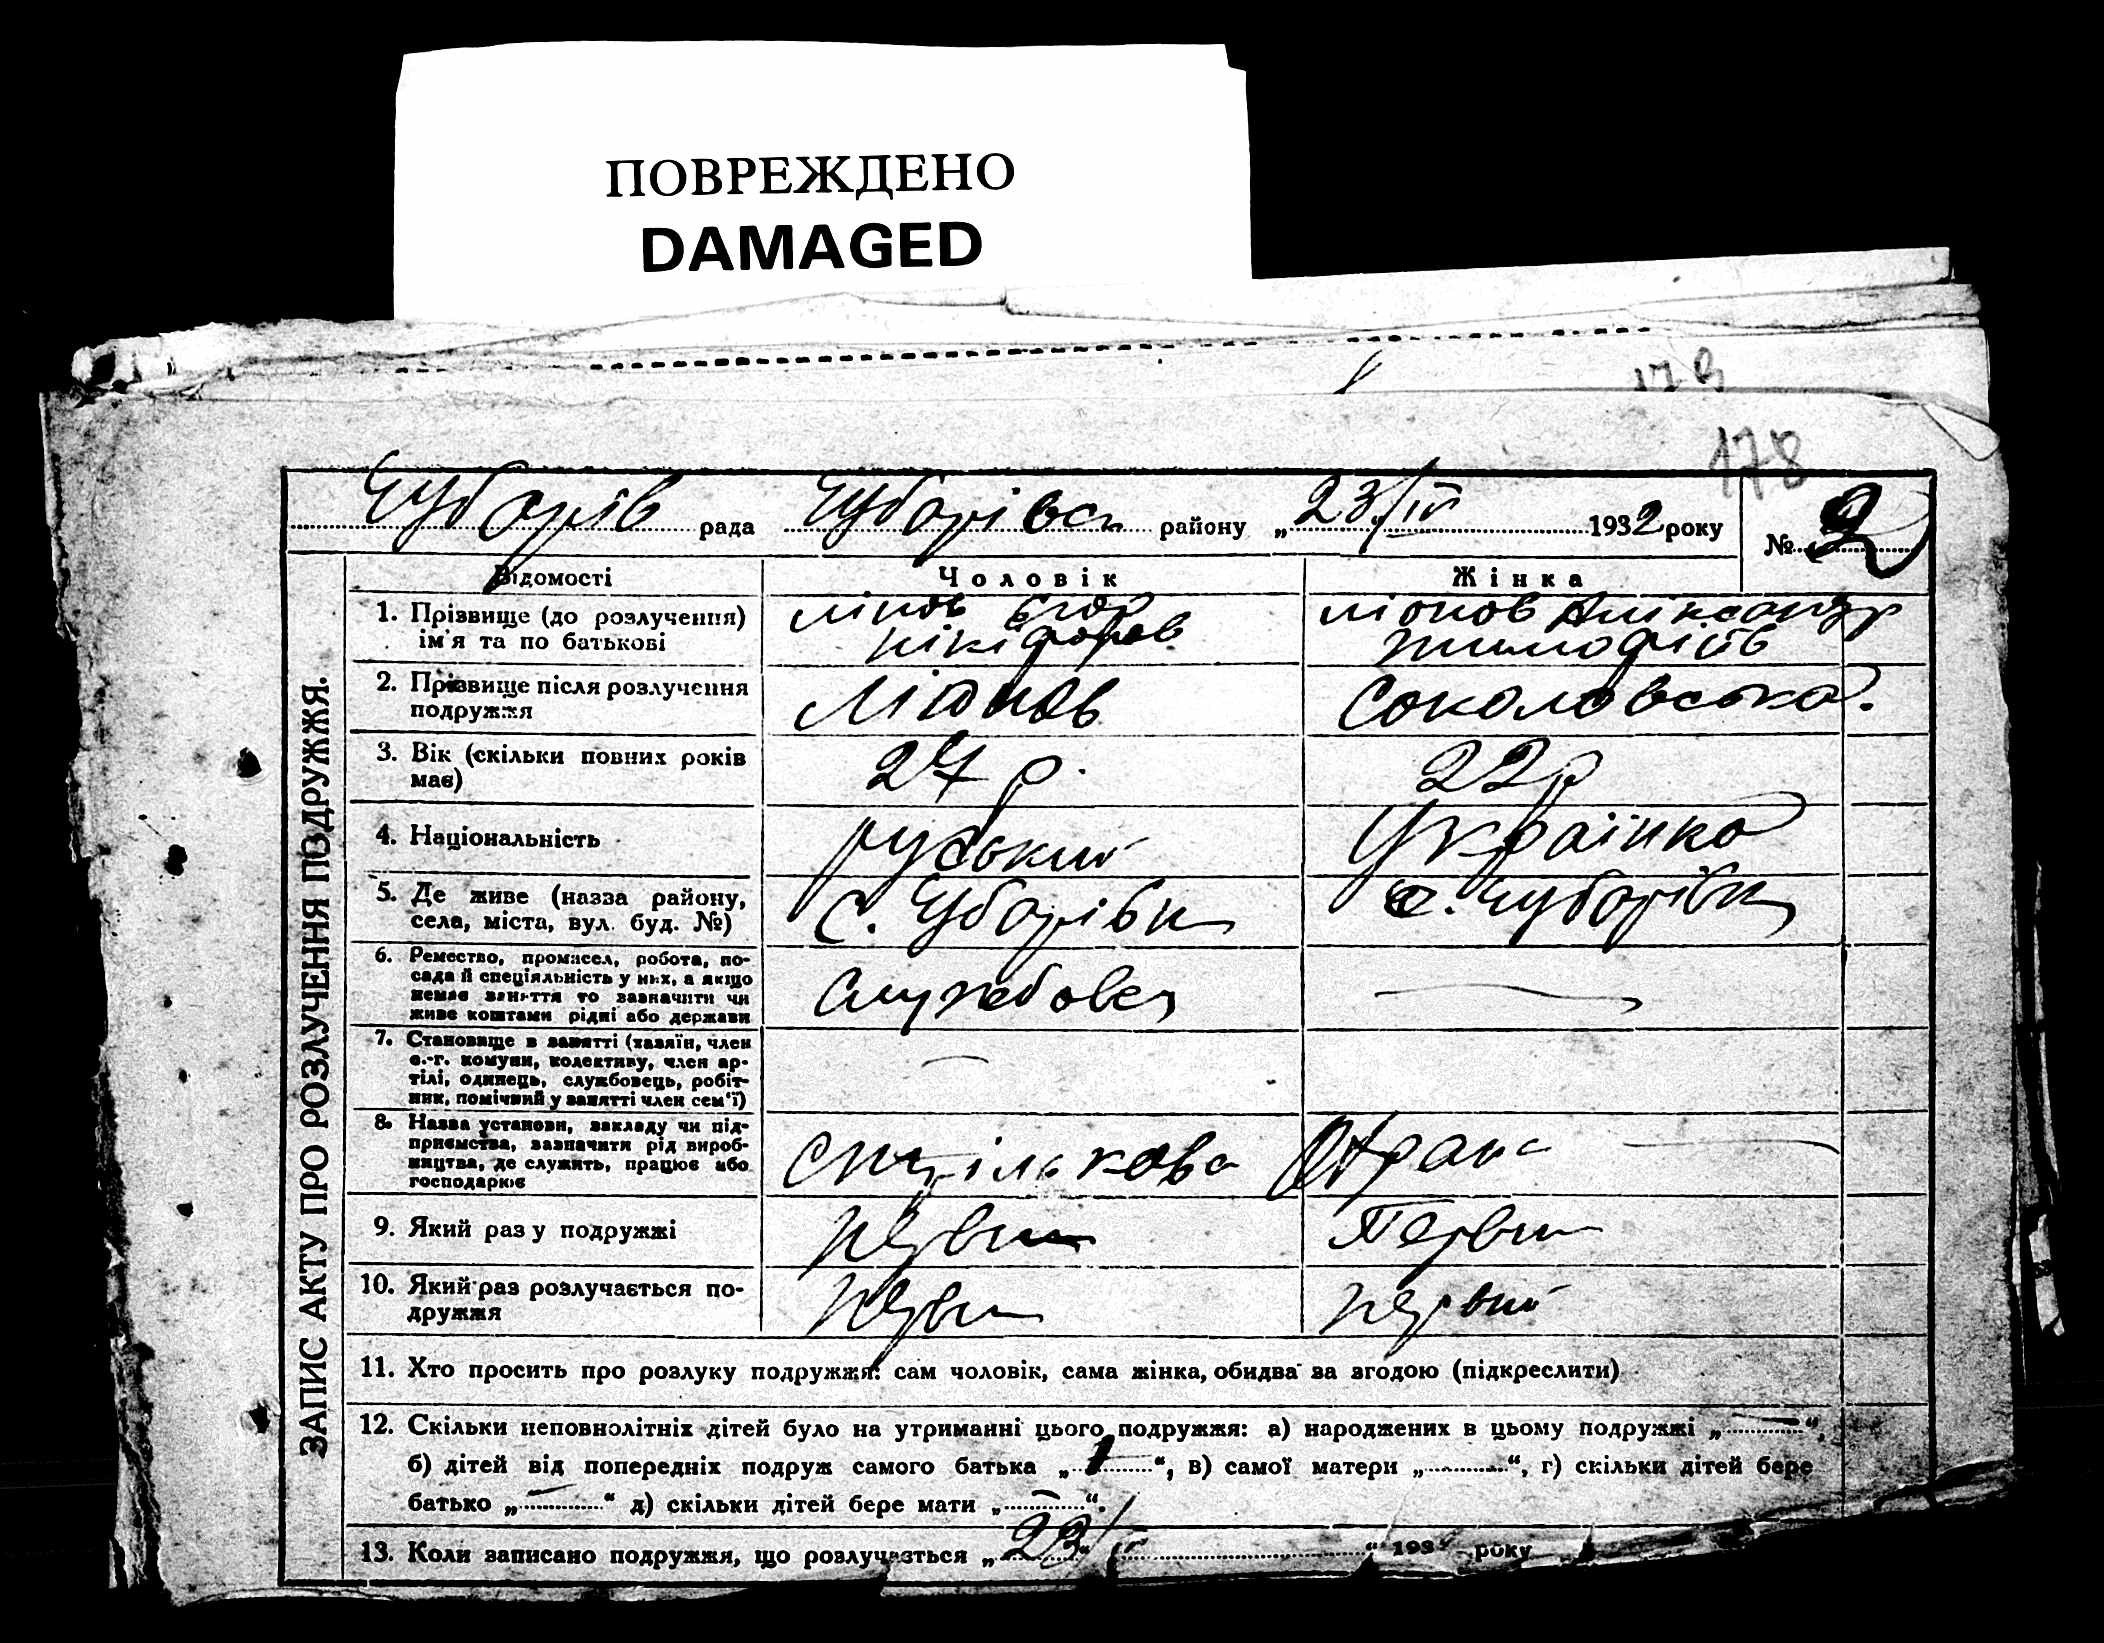 ПОВРЕЖДЕНО
DAMAGED
178
рада району „23/IV 1932 року № 2
ЗАПИС АКТУ ПРО РОЗЛУЧЕННЯ ПОДРУЖЖЯ.
Відомості Чоловік Жінка
1. Прізвище (до розлучення) Єгор
ім'я та по батькові
2. Прізвище після розлучення Соколовська.
подружжя
3. Вік (скільки повних років 27 р. 22 р
має)
4. Національність руський Українка
5. Де живе (назва району, с. с.
села, міста, вул. буд. №)
6. Ремество, промисел, робота, по-
сада й спеціяльність у них, а якщо Службовец
немає заняття то зазначити чи
живе коштами рідні або держави
7. Становище в занятті (хазяїн, член
с.-г. комуни, колективу, член ар-
тілі, одинець, службовець, робіт-
ник, помічний у занятті член сем'ї)
8. Назва установи, закладу чи під-
приємства, зазначити рід вироб-
ництва, де служить, працює або
господарює
9. Який раз у подружжі Первий
10. Який раз розлучається по- первий
дружжя
11. Хто просить про розлуку подружжя: сам чоловік, сама жінка, обидва за згодою (підкреслити)
12. Скільки неповнолітніх дітей було на утриманні цього подружжя: а) народжених в цьому подружжі „—“,
б) дітей від попередніх подруж самого батька „1“, в) самої матери „ “, г) скільки дітей бере
батько „—“ д) скільки дітей бере мати „—“.
13. Коли записано подружжя, що розлучається „23/ “ 193 року